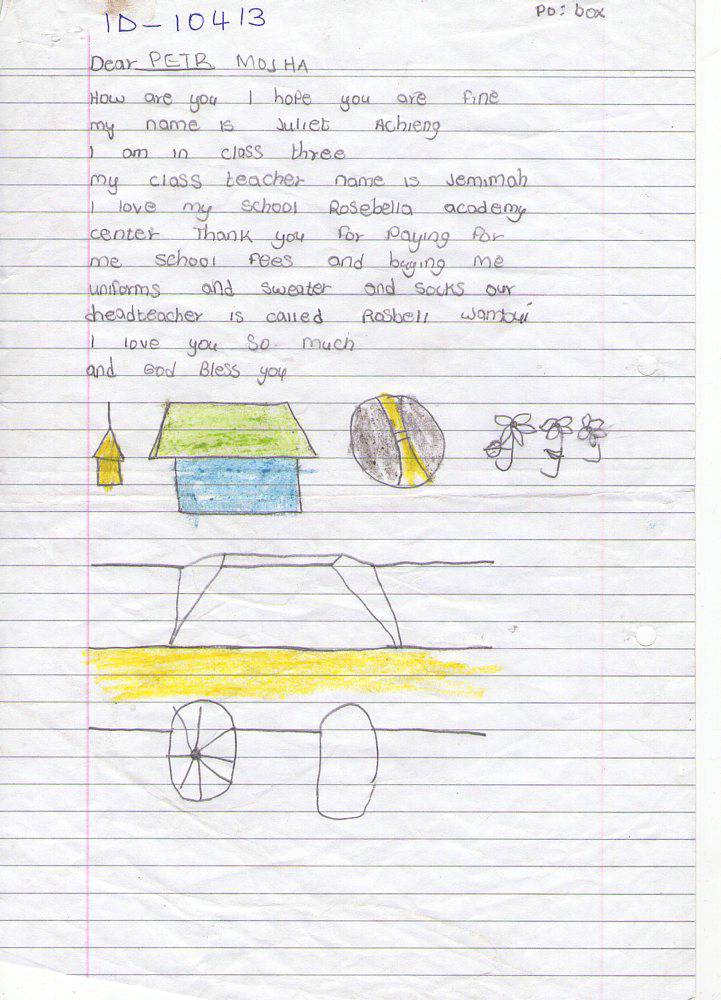 ID-10413
PO: box
Dear PETR MOSHA
How are you I hope you are fine
my name is Juliet Achieng
I am in class three
my class teacher name is Jemimah
I love my school Rosebella academy
center Thank you for Paying for
me school fees and buying me
uniforms and sweater and socks our
headteacher is called Rosbell wambui
I love you so much
and God Bless you